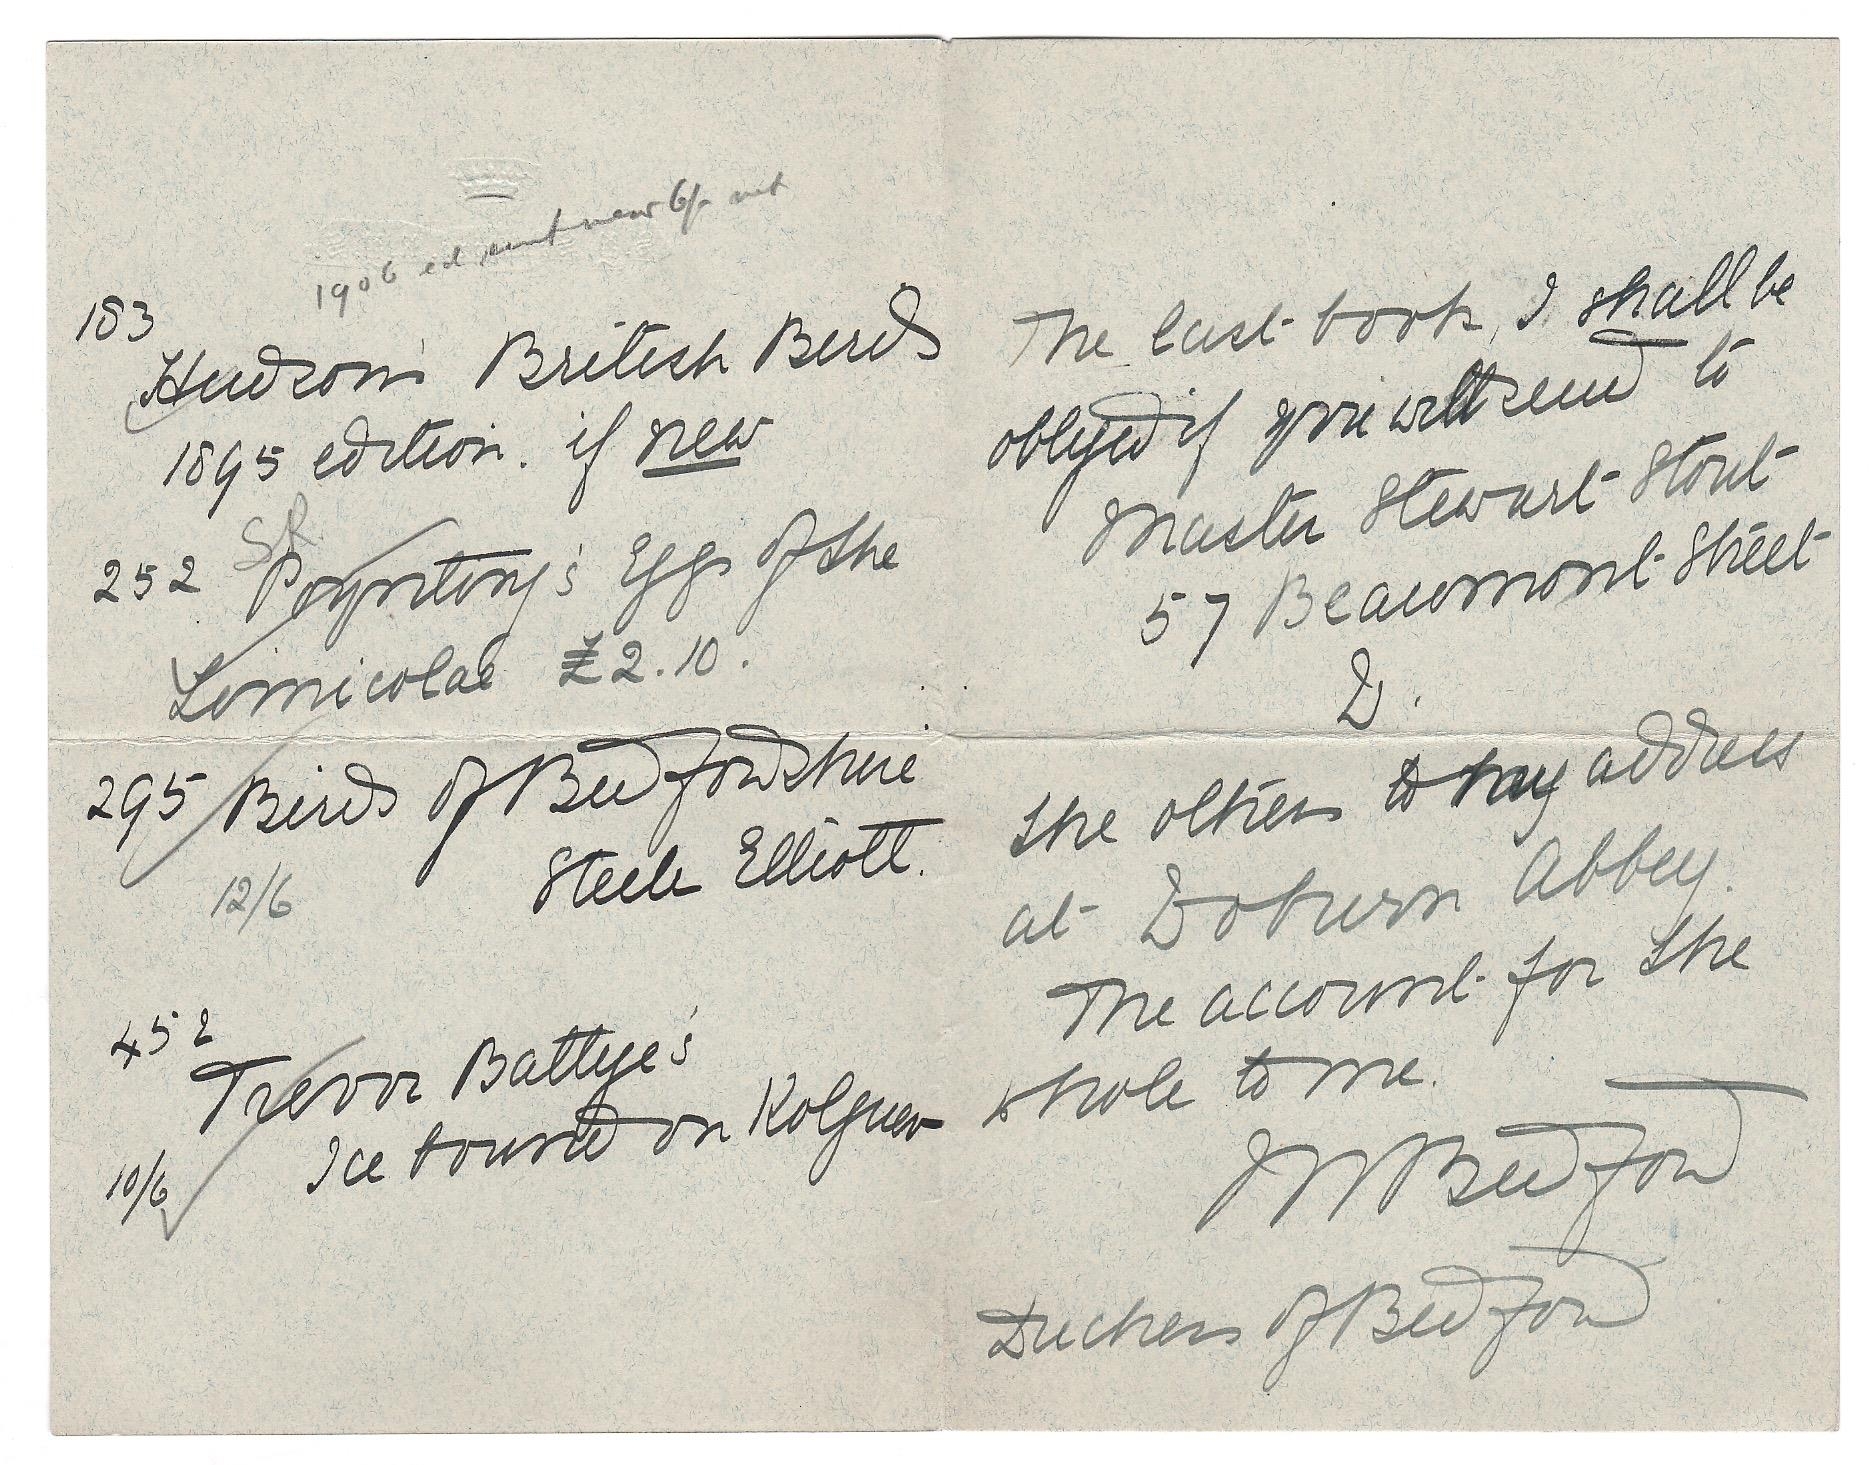 1906 ed sent new 6/- net
183
Hudson's British Birds
1895 edition. if new
SR
252 Poynting's Eggs of the
Limicolae £2.10.
295 Birds of Bedfordshire
Steele Elliott.
12/6
452
Trevor Battye's
Ice bound on Kolguev
10/6
The last book, I shall be
obliged if you will send to
Master Stewart Stout
57 Beaumont Street
W.
The others to my address
at Woburn Abbey.
The account for the
whole to me.
M Bedford
Duchess of Bedford